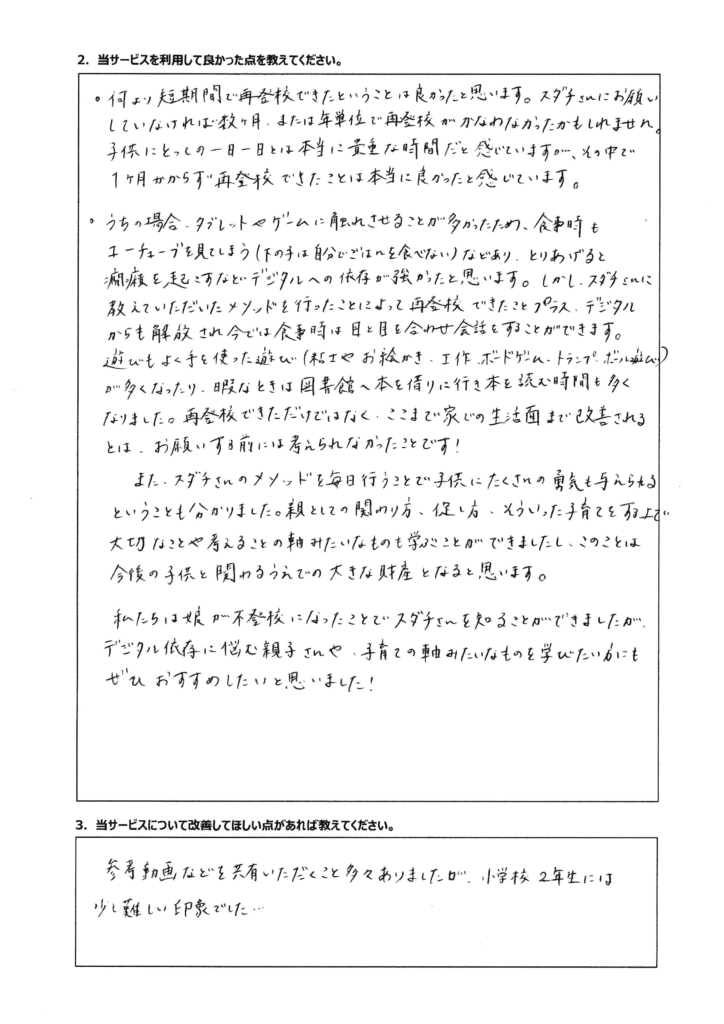 2. 当サービスを利用して良かった点を教えてください。
・何より短期間で再登校できたということは良かったと思います。スダチさんにお願い
していなければ数ヶ月、または年単位で再登校がかなわなかったかもしれません。
子供にとっての一日一日とは本当に貴重な時間だと感じていますが、その中で
1ヶ月かからず再登校できたことは本当に良かったと感じています。
・うちの場合、タブレットやゲームに触れさせることが多かったため、食事時も
ユーチューブを見てしまう(下の子は自分でごはんを食べない)などあり、とりあげると
癇癪を起こすなどデジタルへの依存が強かったと思います。しかし、スダチさんに
教えていただいたメソッドを行ったことによって再登校できたことプラス、デジタル
からも解放され今では食事時は目と目を合わせ会話をすることができます。
遊びもよく手を使った遊び(粘土やお絵かき、工作、ボードゲーム、トランプ、ボール遊び)
が多くなったり、暇なときは図書館へ本を借りに行き本を読む時間も多く
なりました。再登校できただけではなく、ここまで家での生活面まで改善される
とは、お願いする前には考えられなかったことです!
また、スダチさんのメソッドを毎日行うことで子供にたくさんの勇気も与えられる
ということも分かりました。親としての関わり方、促し方、そういった子育てをする上で
大切なことや考えることの軸みたいなものも学ぶことができましたし、このことは
今後の子供と関わるうえでの大きな財産となると思います。
私たちは娘が不登校になったことでスダチさんを知ることができましたが、
デジタル依存に悩む親子さんや、子育ての軸みたいなものを学びたい方にも
ぜひおすすめしたいと思いました!
3. 当サービスについて改善してほしい点があれば教えてください。
参考動画などを共有いただくこと多々ありましたが、小学校2年生には
少し難しい印象でした…